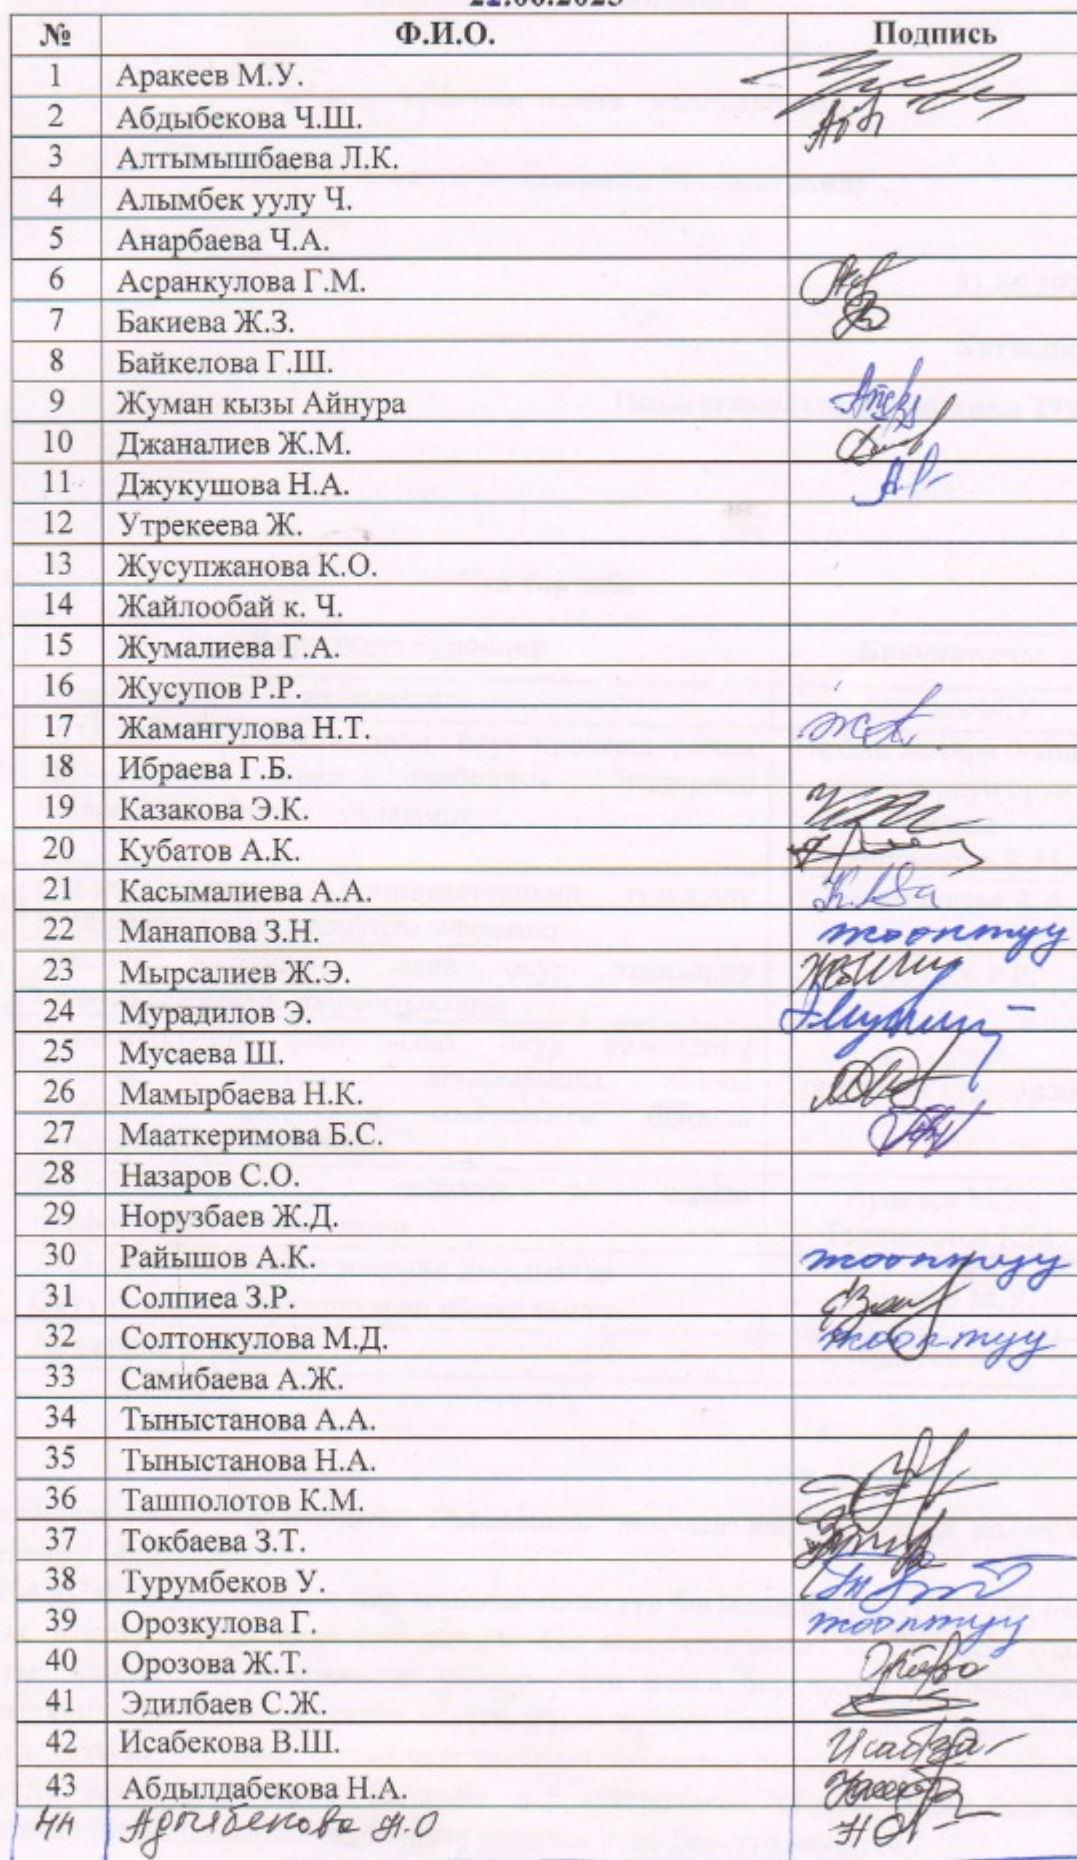 22.06.2023
№ Ф.И.О. Подпись
1 Аракеев М.У.
2 Абдыбекова Ч.Ш.
3 Алтымышбаева Л.К.
4 Алымбек уулу Ч.
5 Анарбаева Ч.А.
6 Асранкулова Г.М.
7 Бакиева Ж.З.
8 Байкелова Г.Ш.
9 Жуман кызы Айнура
10 Джаналиев Ж.М.
11 Джукушова Н.А.
12 Утрекеева Ж.
13 Жусупжанова К.О.
14 Жайлообай к. Ч.
15 Жумалиева Г.А.
16 Жусупов Р.Р.
17 Жамангулова Н.Т.
18 Ибраева Г.Б.
19 Казакова Э.К.
20 Кубатов А.К.
21 Касымалиева А.А.
22 Манапова З.Н. жооптуу
23 Мырсалиев Ж.Э.
24 Мурадилов Э.
25 Мусаева Ш.
26 Мамырбаева Н.К.
27 Мааткеримова Б.С.
28 Назаров С.О.
29 Норузбаев Ж.Д.
30 Райышов А.К. жооптуу
31 Солпиеа З.Р.
32 Солтонкулова М.Д. жооптуу
33 Самибаева А.Ж.
34 Тыныстанова А.А.
35 Тыныстанова Н.А.
36 Ташполотов К.М.
37 Токбаева З.Т.
38 Турумбеков У.
39 Орозкулова Г. жооптуу
40 Орозова Ж.Т.
41 Эдилбаев С.Ж.
42 Исабекова В.Ш.
43 Абдылдабекова Н.А.
44